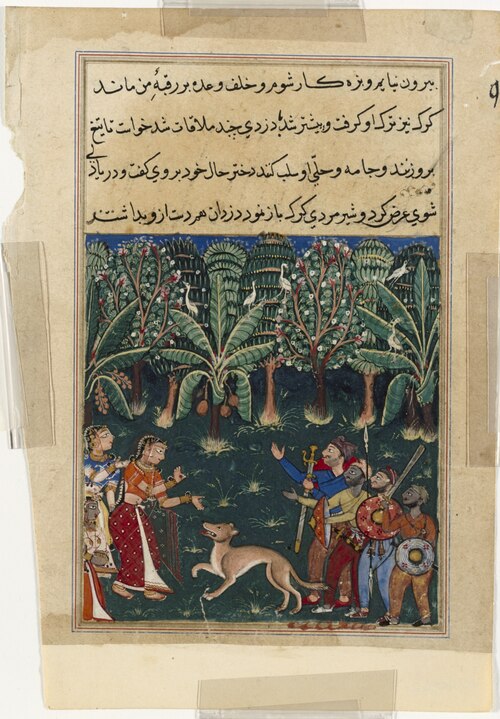 بیرون نیایم و بزه کار شوم و خلف وعده بر رقبهٔ من ماند
کرک نیز ترک او کرفت و پیشتر شد دزدی چند ملاقات شد خواست تا تیغ
بروزنند و جامه و حلی او سلب کنند دختر حال خود بروی کفت و دریا دلی
شوی عرض کرد و شیر مردی کرک باز نمود دزدان هم دست ازو بداشتند